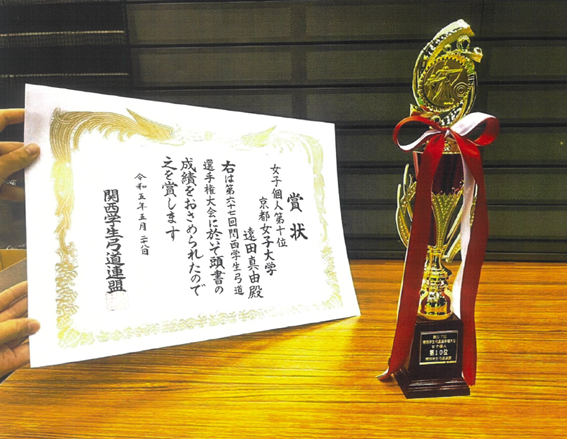 賞状
女子個人第十位
京都女子大学
遠田真由殿
右は第六十七回関西学生弓道
選手権大会に於いて頭書の
成績をおさめられたので
之を賞します
令和五年五月二八日
関西学生弓道連盟
女子個人
第10位
関西学生弓道連盟